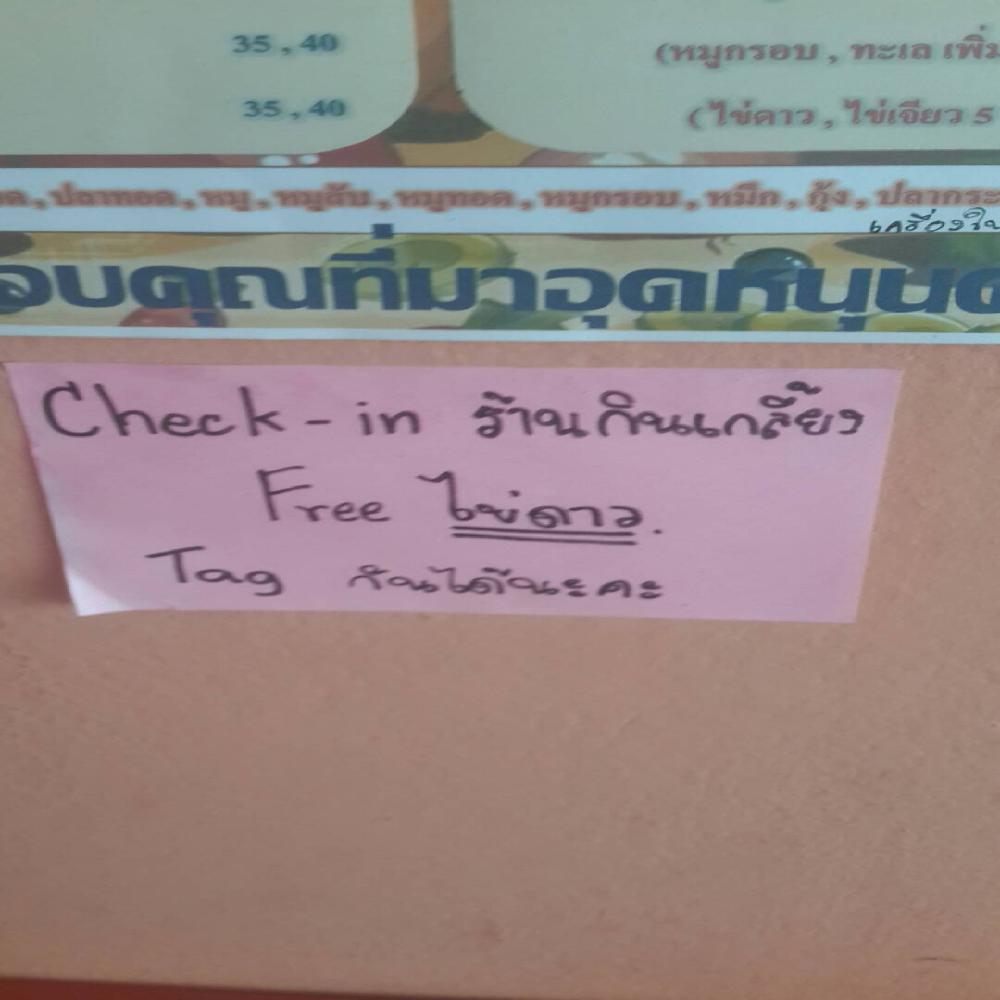 35 , 40
(หมูกรอบ , ทะเล เพิ่ม
35 , 40
(ไข่ดาว , ไข่เจียว 5
, ปลาทอด , หมู , หมูสับ , หมูทอด , หมูกรอบ , หมึก , กุ้ง , ปลากระ
เครื่องใน
อบคุณที่มาอุดหนุนค
Check-in ร้านกินเกลี้ยง
Free ไข่ดาว.
Tag กันได้นะคะ